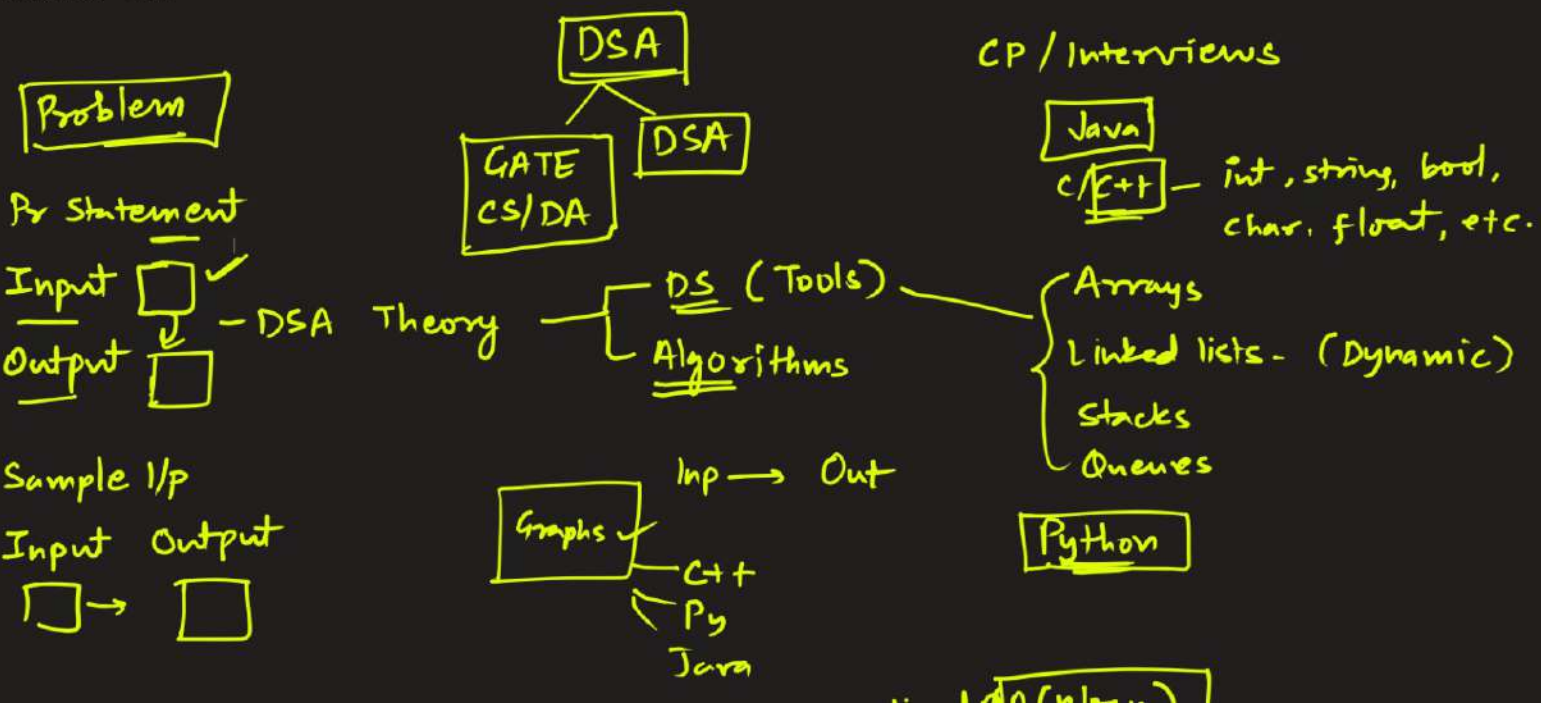 Problem
Pr Statement
Input
Output
- DSA Theory
Sample I/p
Input Output
DSA
GATE
CS/DA
DSA
DS (Tools)
Algorithms
Inp → Out
Graphs
C++
Py
Java
CP / Interviews
Java
C/C++ - int, string, bool,
char, float, etc.
Arrays
Linked lists - (Dynamic)
Stacks
Queues
Python